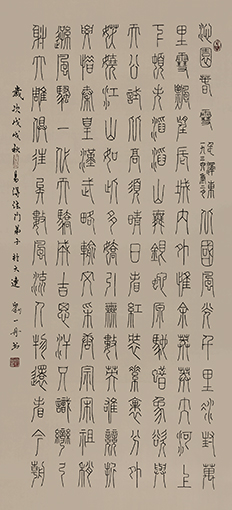 沁園春雪 北國風光千里冰封萬
毛澤東
一九三六年二月
里雪飄望長城內外惟餘莽莽大河上
下頓失滔滔山舞銀蛇原馳蠟象欲與
天公試比高須晴日看紅裝素裹分外
妖嬈江山如此多嬌引無數英雄競折
腰惜秦皇漢武略輸文采唐宗宋祖稍
遜風騷一代天驕成吉思汗只識彎弓
射大雕俱往矣數風流人物還看今朝
歲次戊戌秋 門弟子於大連